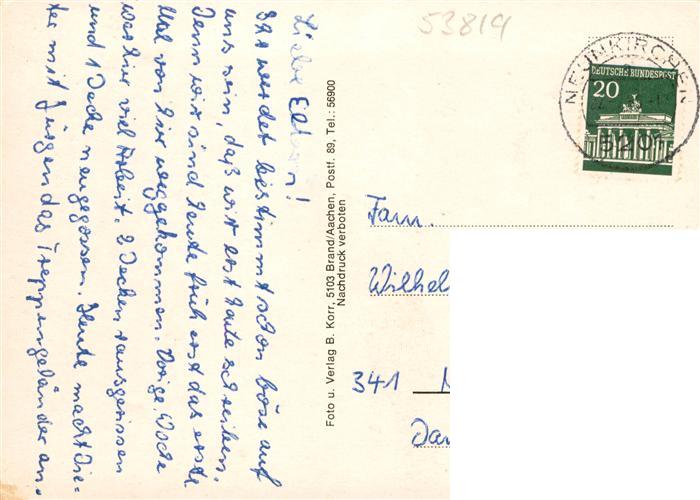 Liebe Eltern!
Ihr werdet bestimmt schon böse auf
uns sein, daß wir erst heute schreiben.
Denn wir sind heute früh erst das erste
Mal von hier weggekommen. Vorige Woche
war hier viel Arbeit. 2 Decken rausgerissen
und 1 Decke neugegossen. Heute macht Die-
ter mit Jürgen das Treppengeländer an.
Foto u. Verlag B. Korr, 5103 Brand/Aachen, Postf. 89, Tel.: 56900
Nachdruck verboten
53819
NEUNKIRCHEN
DEUTSCHE BUNDESPOST
20
Fam.
Wilhel
341